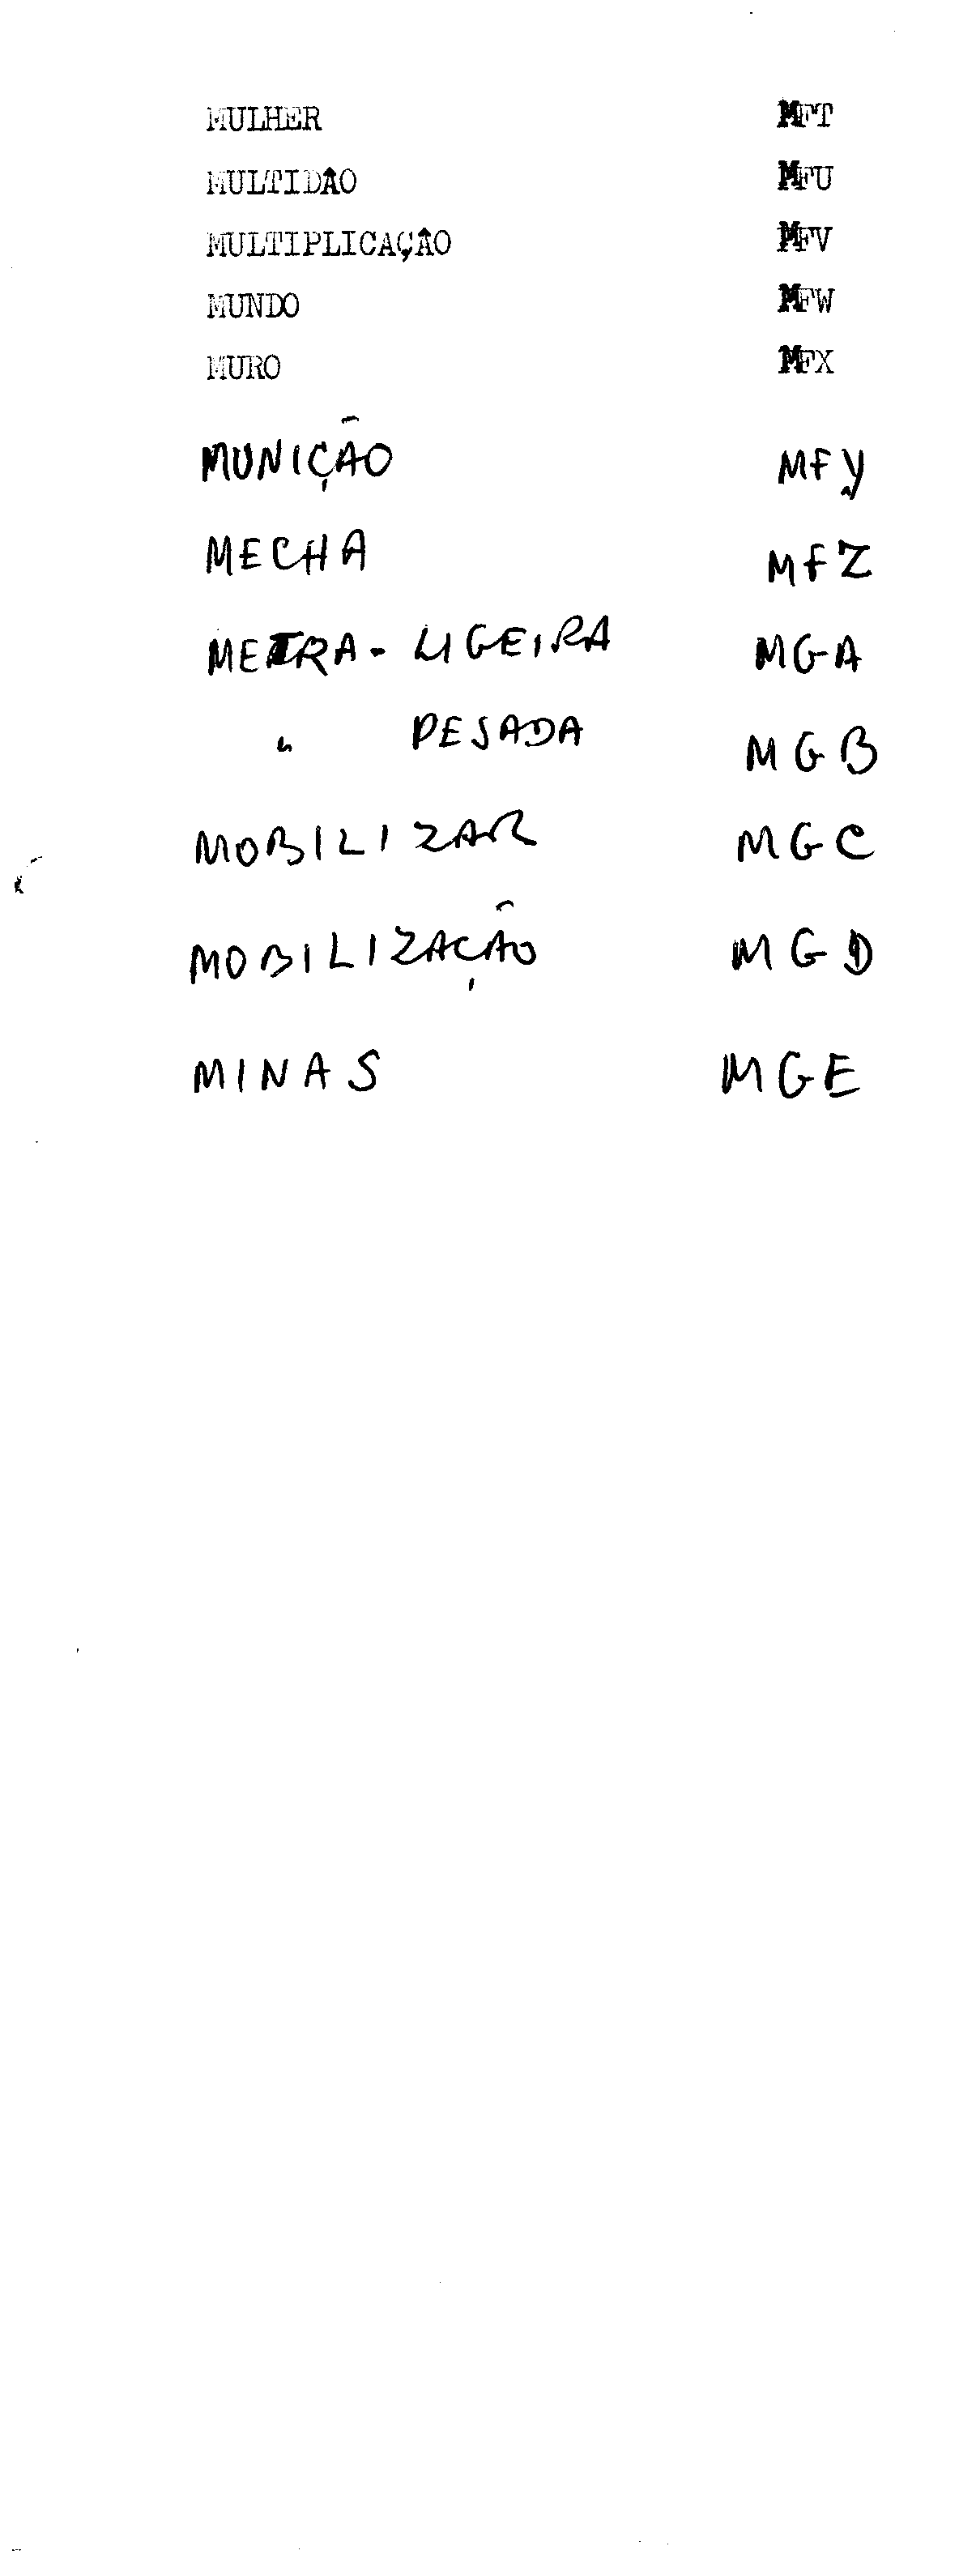 MULHER MFT
MULTIDÃO MFU
MULTIPLICAÇÃO MFV
MUNDO MFW
MURO MFX
MUNIÇÃO MFY
MECHA MFZ
METRA- LIGEIRA MGA
" PESADA MGB
MOBILIZAR MGC
MOBILIZAÇÃO MGD
MINAS MGE